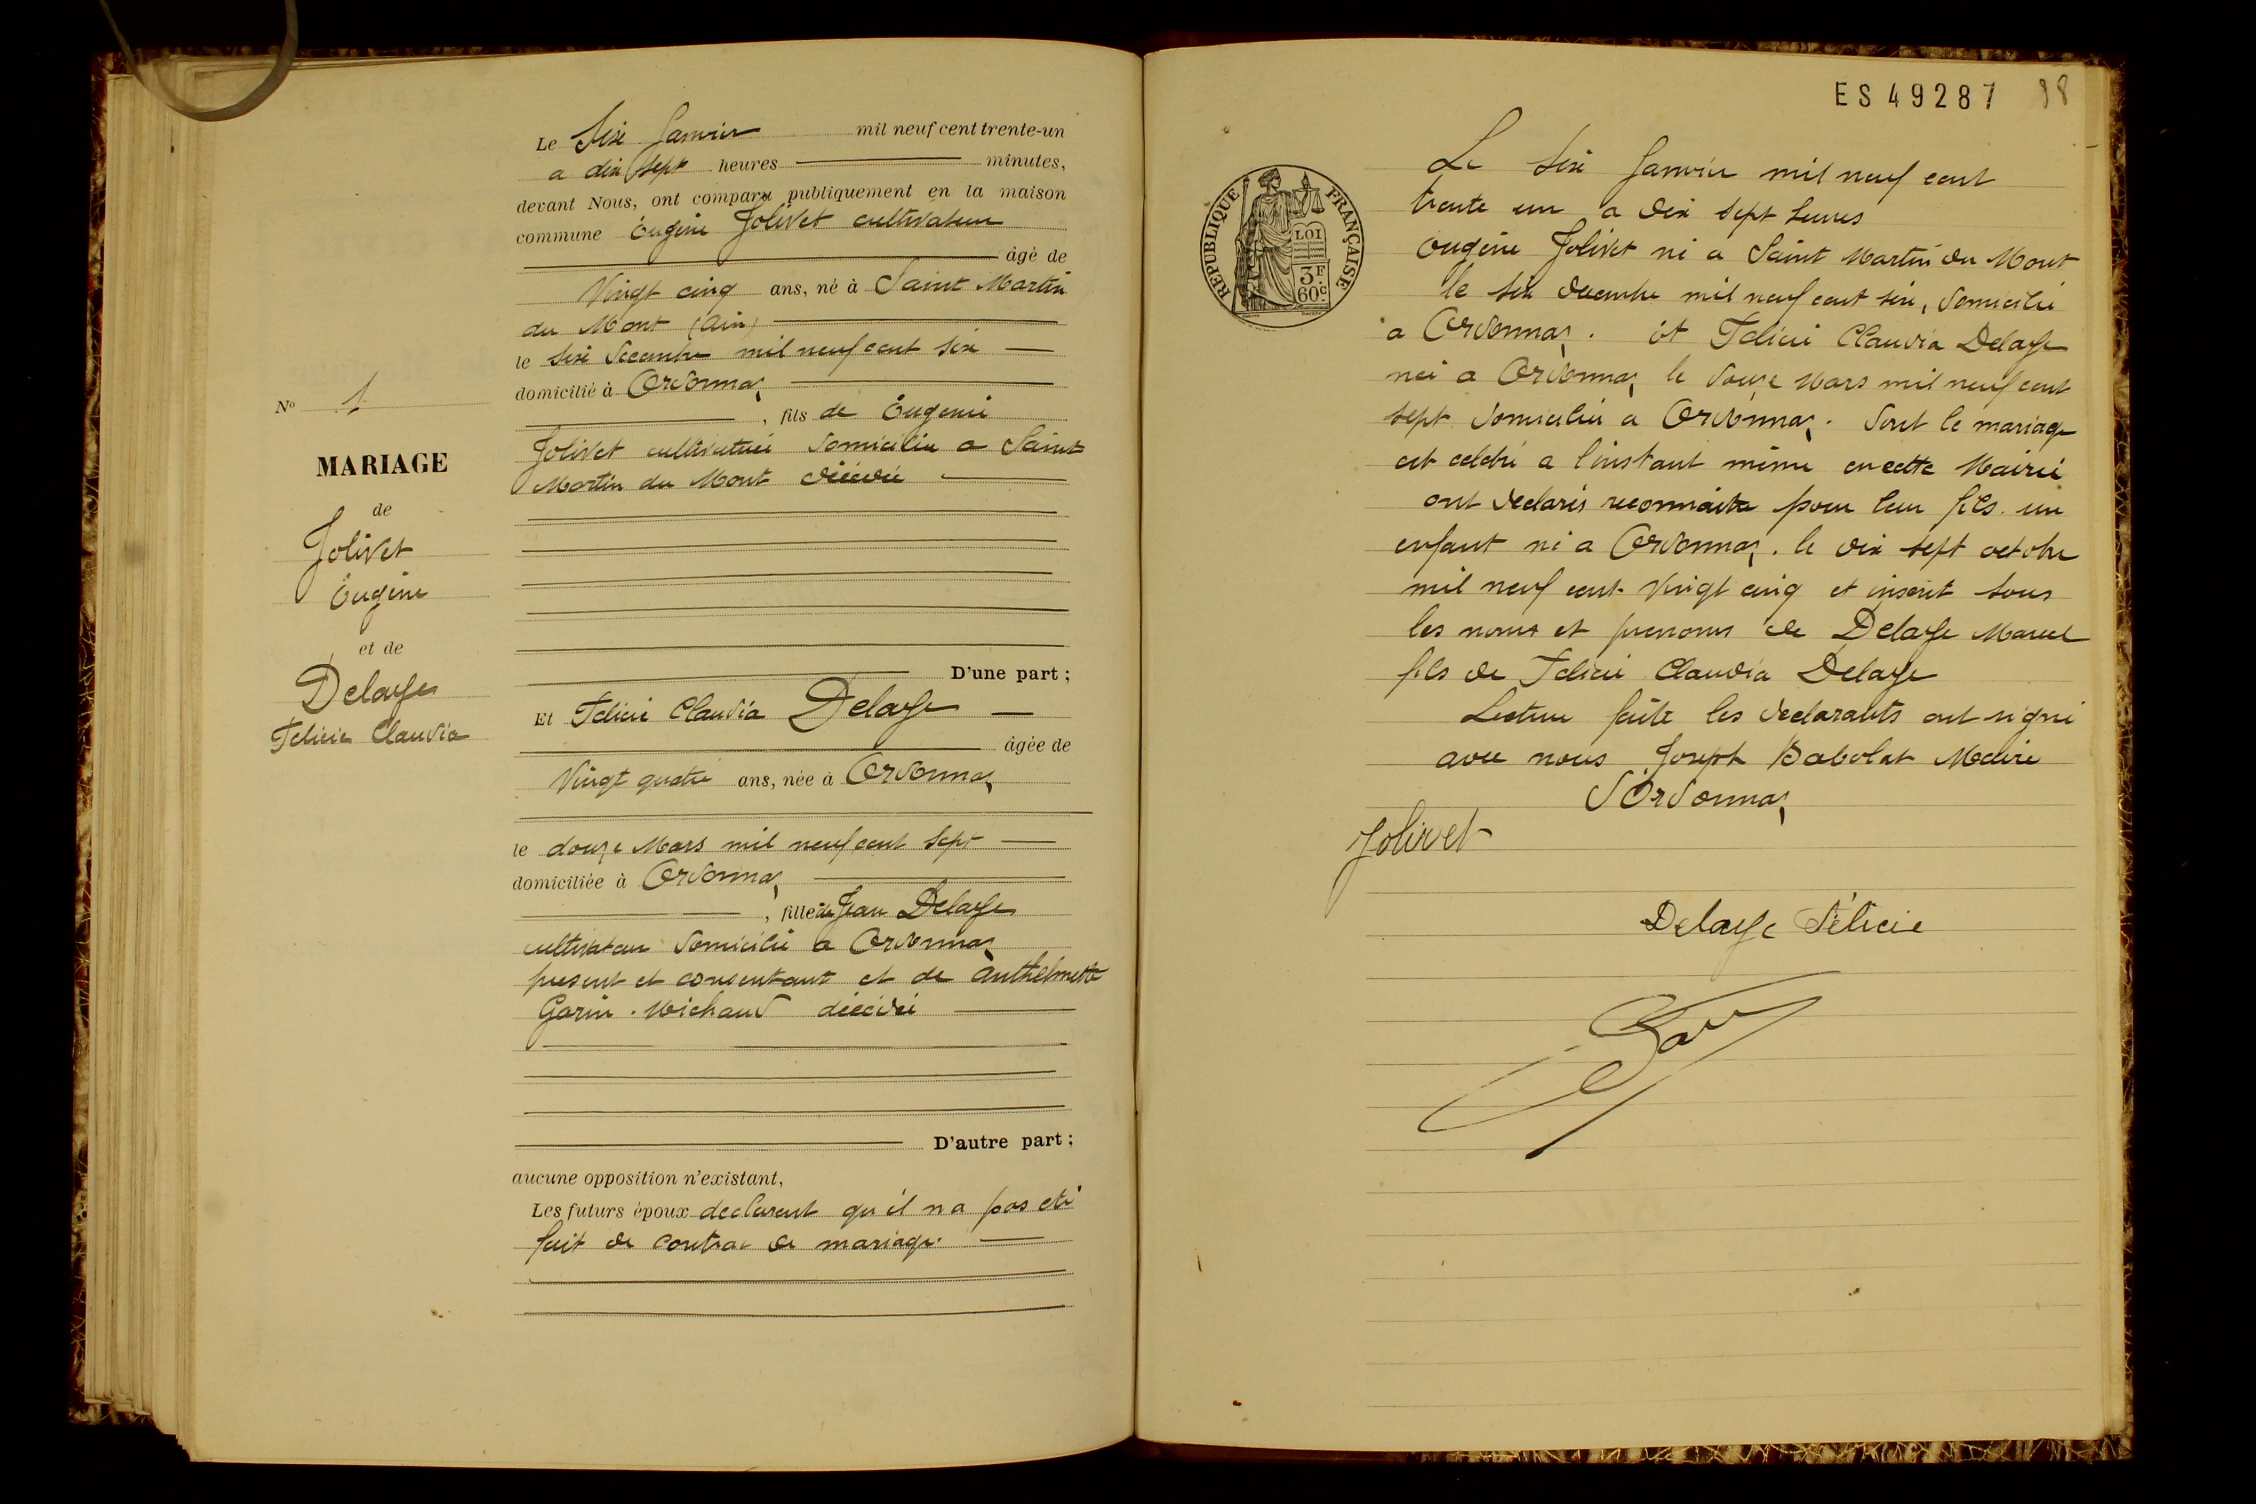 Le Six Janvier mil neuf cent trente-un
a dix sept heures minutes,
devant Nous, ont comparu publiquement en la maison
commune Eugène Jolivet cultivateur
âgé de
Vingt cinq ans, né à Saint Martin
du Mont (Ain)
le six Decembre mil neuf cent six
domicilié à Ordonnaz
, fils de Eugenie
Jolivet cultivatrice domiciliée a Saint
Martin du Mont décédée
D'une part ;
Et Felicie Claudia Delaye
âgée de
Vingt quatre ans, née à Ordonnaz
le douze Mars mil neuf cent sept
domiciliée à Ordonnaz
, fille de Jean Delaye
cultivateur domicilié a Ordonnaz
present et consentant et de Anthelmette
Garin-Michaud décédée
D'autre part ;
aucune opposition n'existant,
Les futurs époux declarent qu'il n a pas été
fait de contrat de mariage.
No 1
MARIAGE
de
Jolivet
Eugène
et de
Delaye
Felicie Claudia
ES 49287 98
REPUBLIQUE FRANÇAISE
LOI
3F
60c
Le six Janvier mil neuf cent
trente un a dix sept heures
Eugène Jolivet né a Saint Martin du Mont
le six decembre mil neuf cent six, domicilié
a Ordonnaz. et Felicie Claudia Delaye
née a Ordonnaz le douze Mars mil neuf cent
sept domiciliée a Ordonnaz. dont le mariage
est celebré a l'instant même en cette Mairie
ont declarés reconnaitre pour leur fils un
enfant né a Ordonnaz. le dix sept octobre
mil neuf cent vingt cinq et inscrit sous
les noms et prenoms de Delaye Marcel
fils de Felicie Claudia Delaye
Lecture faite les declarants ont signé
avec nous Joseph Babolat Maire
d'Ordonnaz
Jolivet
Delaye Félicie